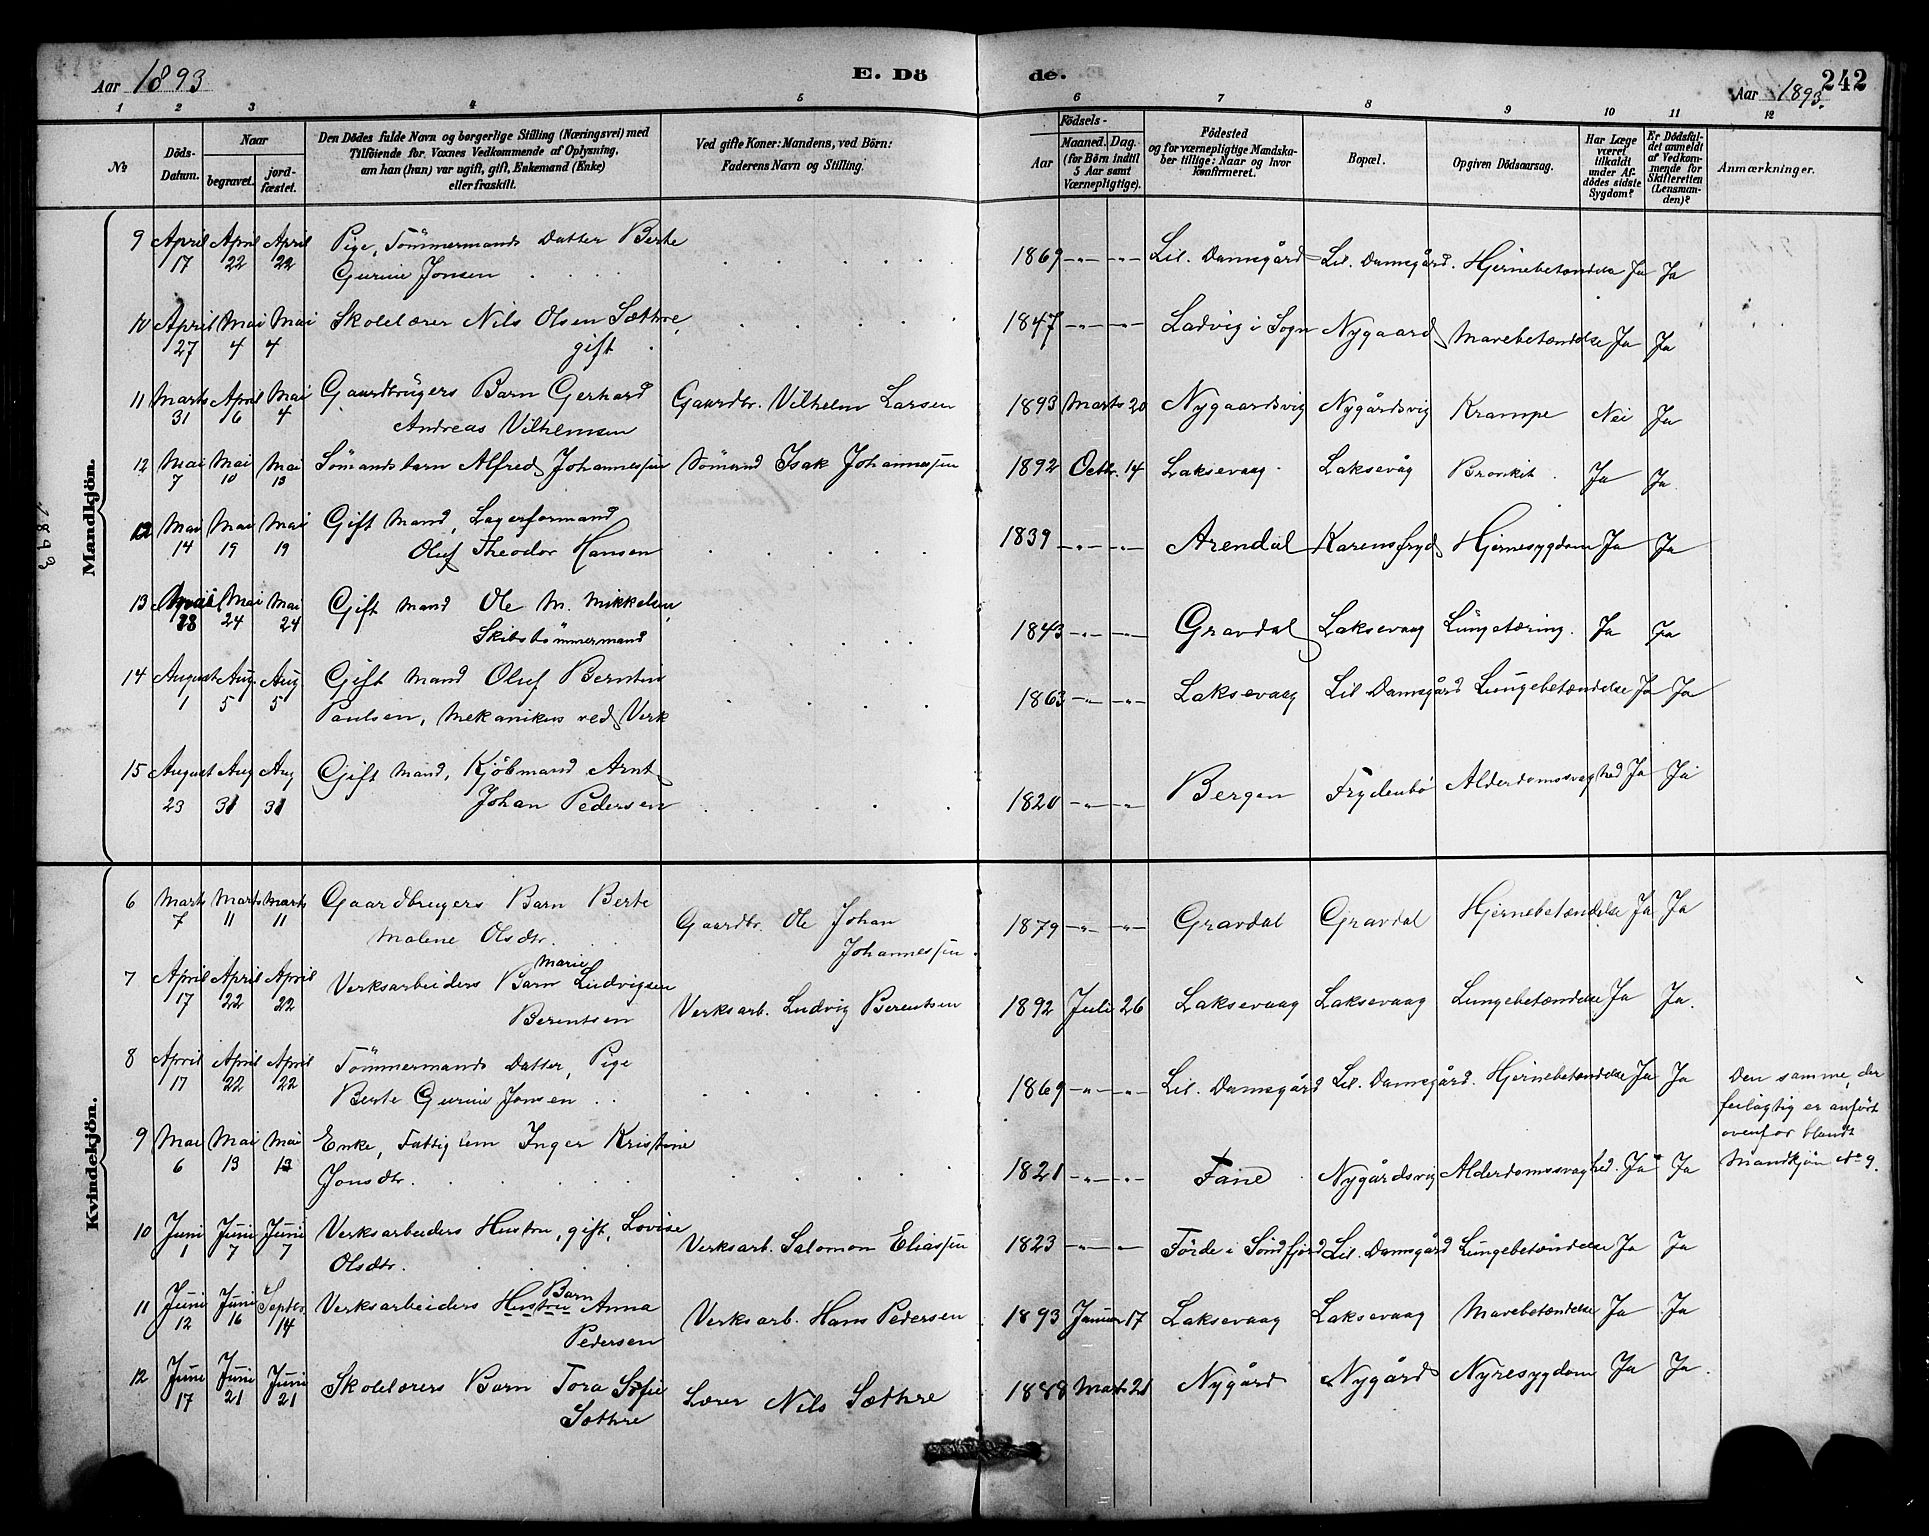 Aar 1893 E. Dö de. Aar 1893. 242
1 2 3 4 5 6 7 8 9 10 11 12
№ Döds-Datum. Naar begravet. jordfæstet. Den Dödes fulde Navn og borgerlige Stilling (Næringsvei) med Tilföiende for Voxnes Vedkommende af Oplysning, om han (hun) var ugift, gift, Enkemand (Enke) eller fraskilt. Ved gifte Koner: Mandens, ved Börn: Faderens Navn og Stilling. Födsels- Aar Maaned. Dag. (for Börn indtil 5 Aar samt Værnepligtige). Födested og for værnepligtige Mandskaber tillige: Naar og hvor konfirmeret. Bopæl. Opgiven Dödsaarsag. Har Læge været tilkaldt under Afdödes sidste Sygdom? Er Dödsfaldet anmeldt af Vedkommende for Skifteretten (Lensmanden)? Anmærkninger.
Mandkjön.
1893
9 April 17 April 22 April 22 Pige, Tömmermands Datter Berte 1869 Lil. Damsgård Lil. Damsgård. Hjernebetændelse Ja Ja
Gurine Jonsen
10 April 27 Mai 4 Mai 4 Skolelærer Nils Olsen Sætthre, 1847 Ladvig i Sogn Nygaard Mavebetændelse Ja Ja
gift
11 Marts 31 April 6 Mai 4 Gaardbrugers Barn Gerhard Gaardbr. Vilhelm Larsen 1893 Marts 20 Nygaardsvig Nygårdsvig Krampe Nei Ja
Andreas Vilhemsen
12 Mai 7 Mai 10 Mai 13 Sömandsbarn Alfred Johannessen Sömand Isak Johannessen 1892 Octbr. 14 Laksevaag Laksevåg Bronkit. Ja Ja
12 Mai 14 Mai 19 Mai 19 Gift Mand, Lagerformand 1839 Arendal Karensfryd Hjernesygdom Ja Ja
Oluf Theodor Hansen
13 Mai 28 Mai 24 Mai 24 Gift Mand Ole M. Mikkelsen, 1843 Gravdal Laksevaag Lungetæring. Ja Ja
Skibstömmermand
14 August 1 Aug. 5 Aug. 5 Gift Mand Oluf Berntin 1863 Laksevaag Lil Damsgård Lungebetændelse Ja Ja
Paulsen, Mekanikus ved Verk
15 August 23 Aug 31 Aug 31 Gift Mand, Kjöbmand Arnt 1820 Bergen Frydenbö Alderdomssvaghed Ja Ja
Johan Pedersen
Kvindekjön.
6 Marts 7 Marts 11 Marts 11 Gaardbrugers Barn Berte Gaardbr. Ole Johan 1879 Gravdal Gravdal Hjernebetændelse Ja Ja
Malene Olsdtr. Johannessen.
7 April 17 April 22 April 22 Verksarbeiders Barn Marie Ludvigsen Verksarb. Ludvig Berentsen 1892 Juli 26 Laksevaag Laksevaag Lungebetændelse Ja Ja.
Berentsen
8 April 17 April 22 April 22 Tömmermands Datter, Pige 1869 Lil. Damsgård Lil. Damsgård. Hjernebetændelse Ja Ja Den samme, der
Berte Gurine Jonsen feilagtig er anfört
ovenfor blandt
Mandkjön No 9.
9 Mai 6 Mai 13 Mai 13 Enke, Fattiglem Inger Kristine 1821 Fane Nygårdsvig Alderdomssvaghed. Ja Ja
Jonsdtr.
10 Juni 1 Juni 7 Juni 7 Verksarbeiders Hustru, gift, Lovise Verksarb. Salomon Eliassen 1823 Förde i Söndfjord Lil. Damsgård Lungebetændelse Ja Ja
Olsdtr.
11 Juni 12 Juni 16 Septbr. 14 Verksarbeiders Hustru Barn Anna Verksarb. Hans Pedersen 1893 Januar 17 Laksevaag Laksevaag Mavebetændelse Ja Ja
Pedersen
12 Juni 17 Juni 21 Juni 21 Skolelærers Barn Tora Sofie Lærer Nils Sætthre 1888 Marts 21 Nygård Nygård Nyresygdom Ja Ja
Sætthre